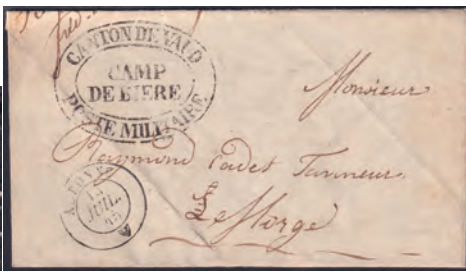 CANTON DE VAUD
CAMP
DE BIERE
POSTE MILITAIRE
Monsieur
Raymond Cadet Tanneur
JUIL.
45